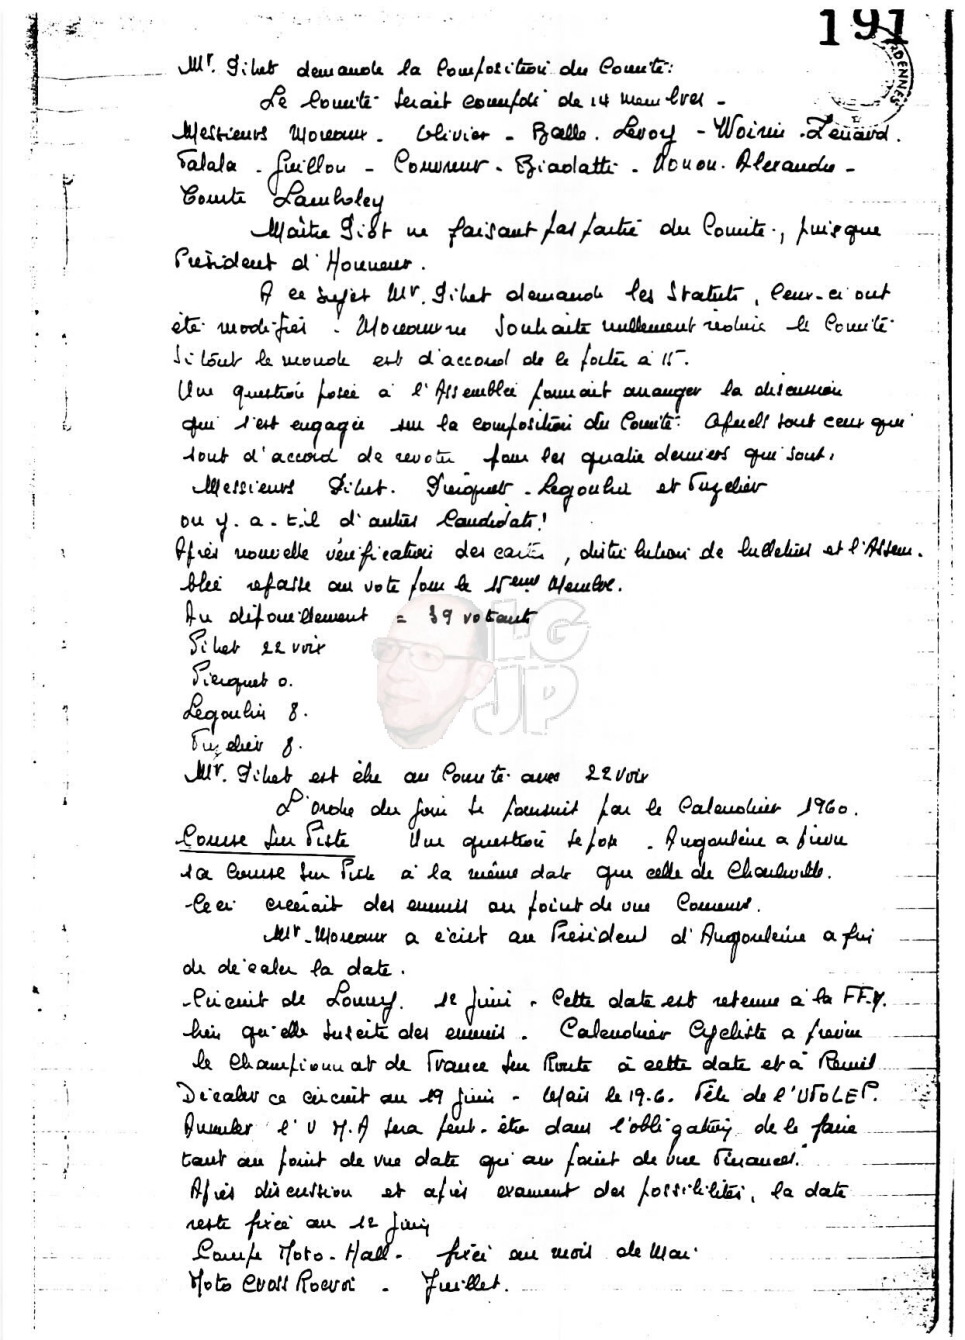 191
ARDENNES
Mr. Pihet demande la Composition du Comité:
Le Comité serait composé de 14 membres -
Messieurs Moreaux - Olivier - Balle - Levoy - Woirin - Zenard.
Talala - Guillou - Couvreur - Biadatti - Alexandre -
Comte Lamboley
Maître Gist ne faisant pas partie du Comité, puisque
Président d'Honneur.
A ce sujet Mr. Pihet demande les Statuts, Ceux-ci ont
été modifiés - Moreaux ne souhaite nullement réduire le Comité
Si tout le monde est d'accord de le porter à 15.
Une question posée à l'Assemblée pourrait arranger la discussion
qui s'est engagée sur la composition du Comité. Quels sont ceux qui
sont d'accord de revoter pour les quatre derniers qui sont,
Messieurs Pihet. Pierquet - Legoulin et Tuzelier
ou y. a. t. il d'autres Candidats!
Après nouvelle vérification des cartes, distribution de bulletins et l'Assem.
blée repasse au vote pour le 15eme Membre.
Au dépouillement = 39 votants
LG
JP
Pihet 22 voix
Pierquet 0.
Legoulin 8.
Tuzelier 8.
Mr. Pihet est élu au Comité avec 22 voix
L'ordre du jour se poursuit par le Calendrier 1960.
Course sur Piste Une question se pose. Angoulême a prévu
sa Course sur Piste à la même date que celle de Charleville.
Ceci créérait des ennuis au point de vue Coureurs.
Mr. Moreaux a écrit au Président d'Angoulême afin
de décaler la date.
Circuit de Lonny. 12 Juin - Cette date est retenue à la FFM.
bien qu'elle suscite des ennuis. Calendrier Cycliste a prévu
le Championnat de France sur Route à cette date et à
Décaler ce circuit au 19 Juin - Mais le 19.6. Fête de l'UFOLEP.
Annuler l'U M.A sera peut-être dans l'obligation de le faire
tant au point de vue date qu'au point de vue Finances.
Après discussion et après des possibilités, la date
reste fixée au 12 Juin
Camp Moto-Hall - fixé au mois de Mai
Moto Cross Rocroi - Juillet.